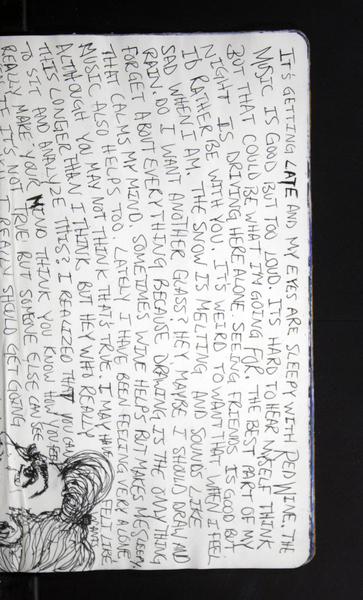 IT'S GETTING LATE AND MY EYES ARE SLEEPY WITH RED WINE. THE
MUSIC IS GOOD BUT TOO LOUD. IT'S HARD TO HEAR MYSELF THINK
BUT THAT COULD BE WHAT I'M GOING FOR. THE BEST PART OF MY
NIGHT IS DRIVING HERE ALONE. SEEING FRIENDS IS GOOD BUT
I'D RATHER BE WITH YOU. IT'S WEIRD TO WANT THAT WHEN I FEEL
SAD WHEN I AM. THE SNOW IS MELTING AND SOUNDS LIKE
RAIN. DO I WANT ANOTHER GLASS? HEY MAYBE I SHOULD DRAW AND
FORGET ABOUT EVERYTHING BECAUSE DRAWING IS THE ONLY THING
THAT CALMS MY MIND. SOMETIMES WINE HELPS BUT MAKES ME SLEEPY.
MUSIC ALSO HELPS TOO. LATELY I HAVE BEEN FEELING VERY ALONE
ALTHOUGH YOU MAY NOT THINK THAT'S TRUE. I MAY HAVE FELT LIKE
THIS LONGER THAN I THINK BUT HEY WHY REALLY
TO SIT AND ANALYZE THIS? I REALIZED THAT YOU CAN
REALLY MAKE YOUR MIND THINK YOU KNOW HOW YOU FEEL
IT'S NOT TRUE BUT SOMEONE ELSE CAN SEE
I REALLY SHOULD GET GOING